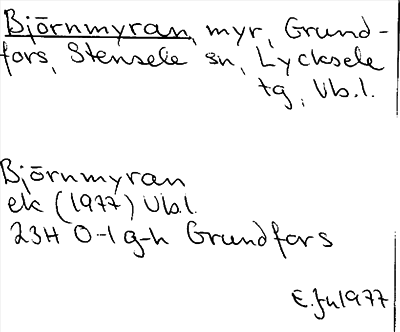 Björnmyran, myr, Grund-
fors, Stensele sn, Lycksele
tg, Vb.l.
Björnmyran
ek (1977) Vb.l.
23H 0-1 g-h Grundfors
E. Ju 1977